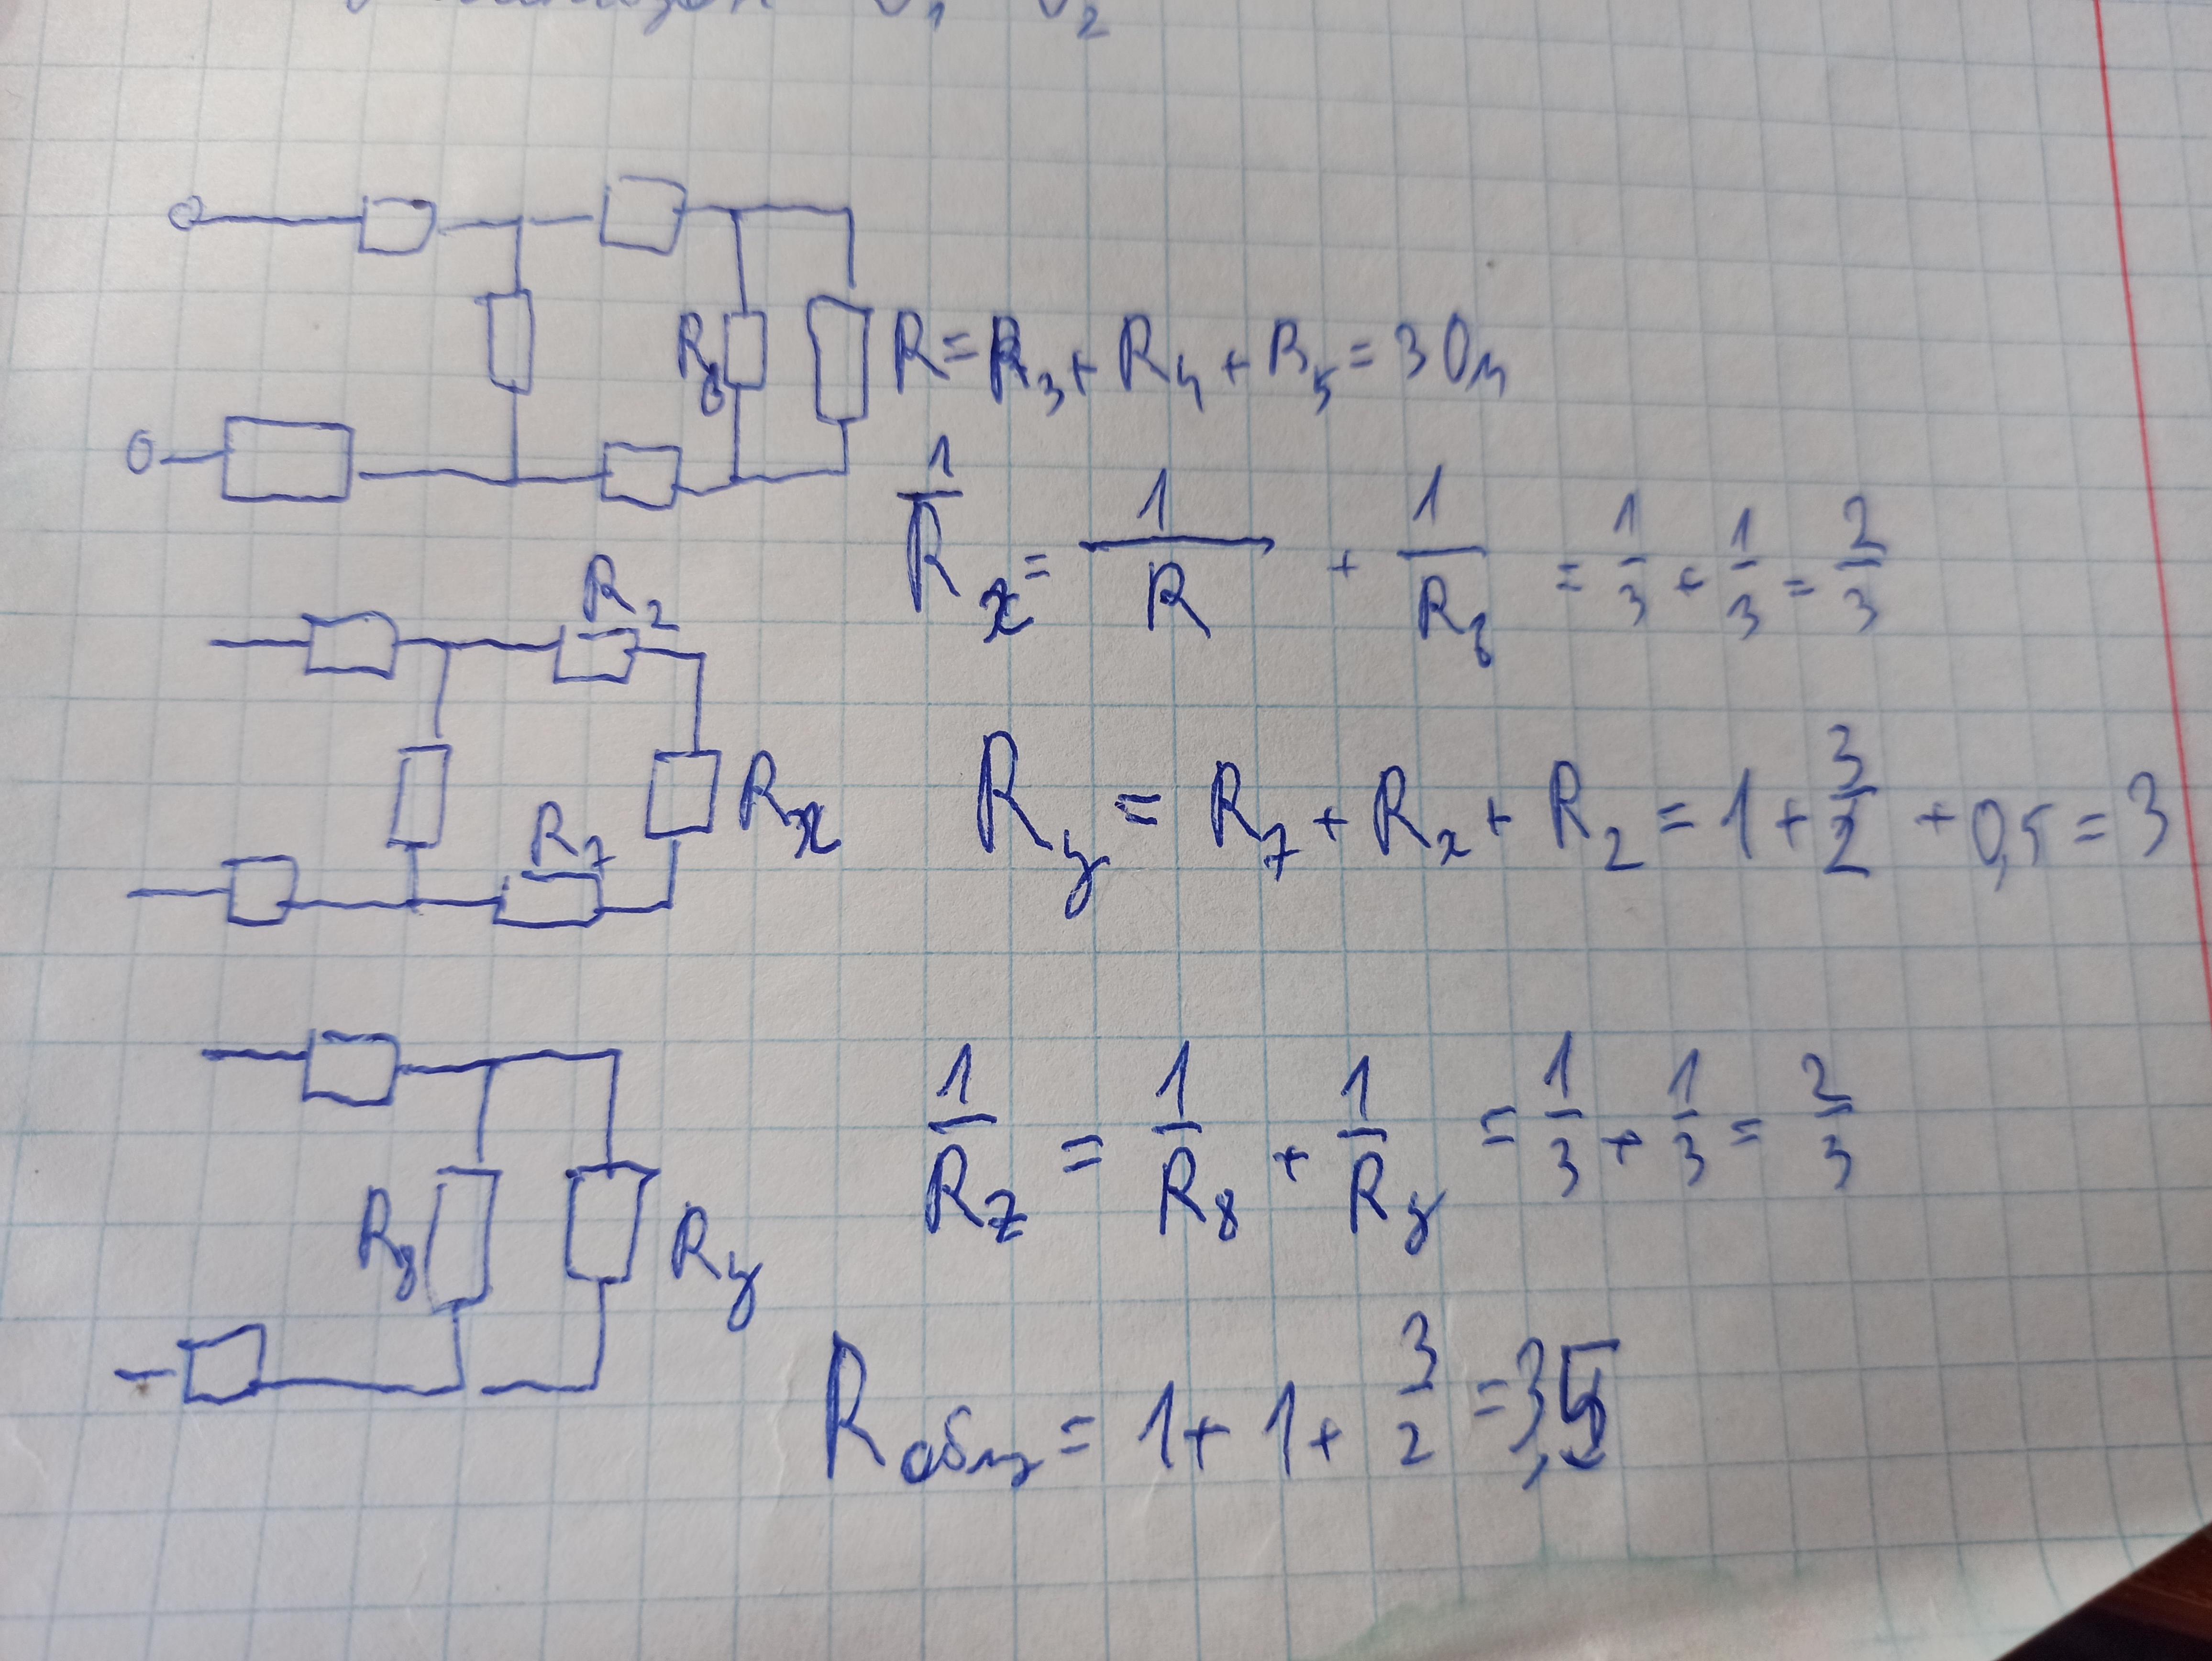 R₆ R = R₃ + R₄ + R₅ = 3 Ом
1/Rₓ = 1/R + 1/R₆ = 1/3 + 1/3 = 2/3
R₂
R₇ Rₓ
R_y = R₇ + Rₓ + R₂ = 1 + 3/2 + 0,5 = 3
R₈ R_y
1/R_z = 1/R₈ + 1/R_y = 1/3 + 1/3 = 2/3
R общ = 1 + 1 + 3/2 = 3,5